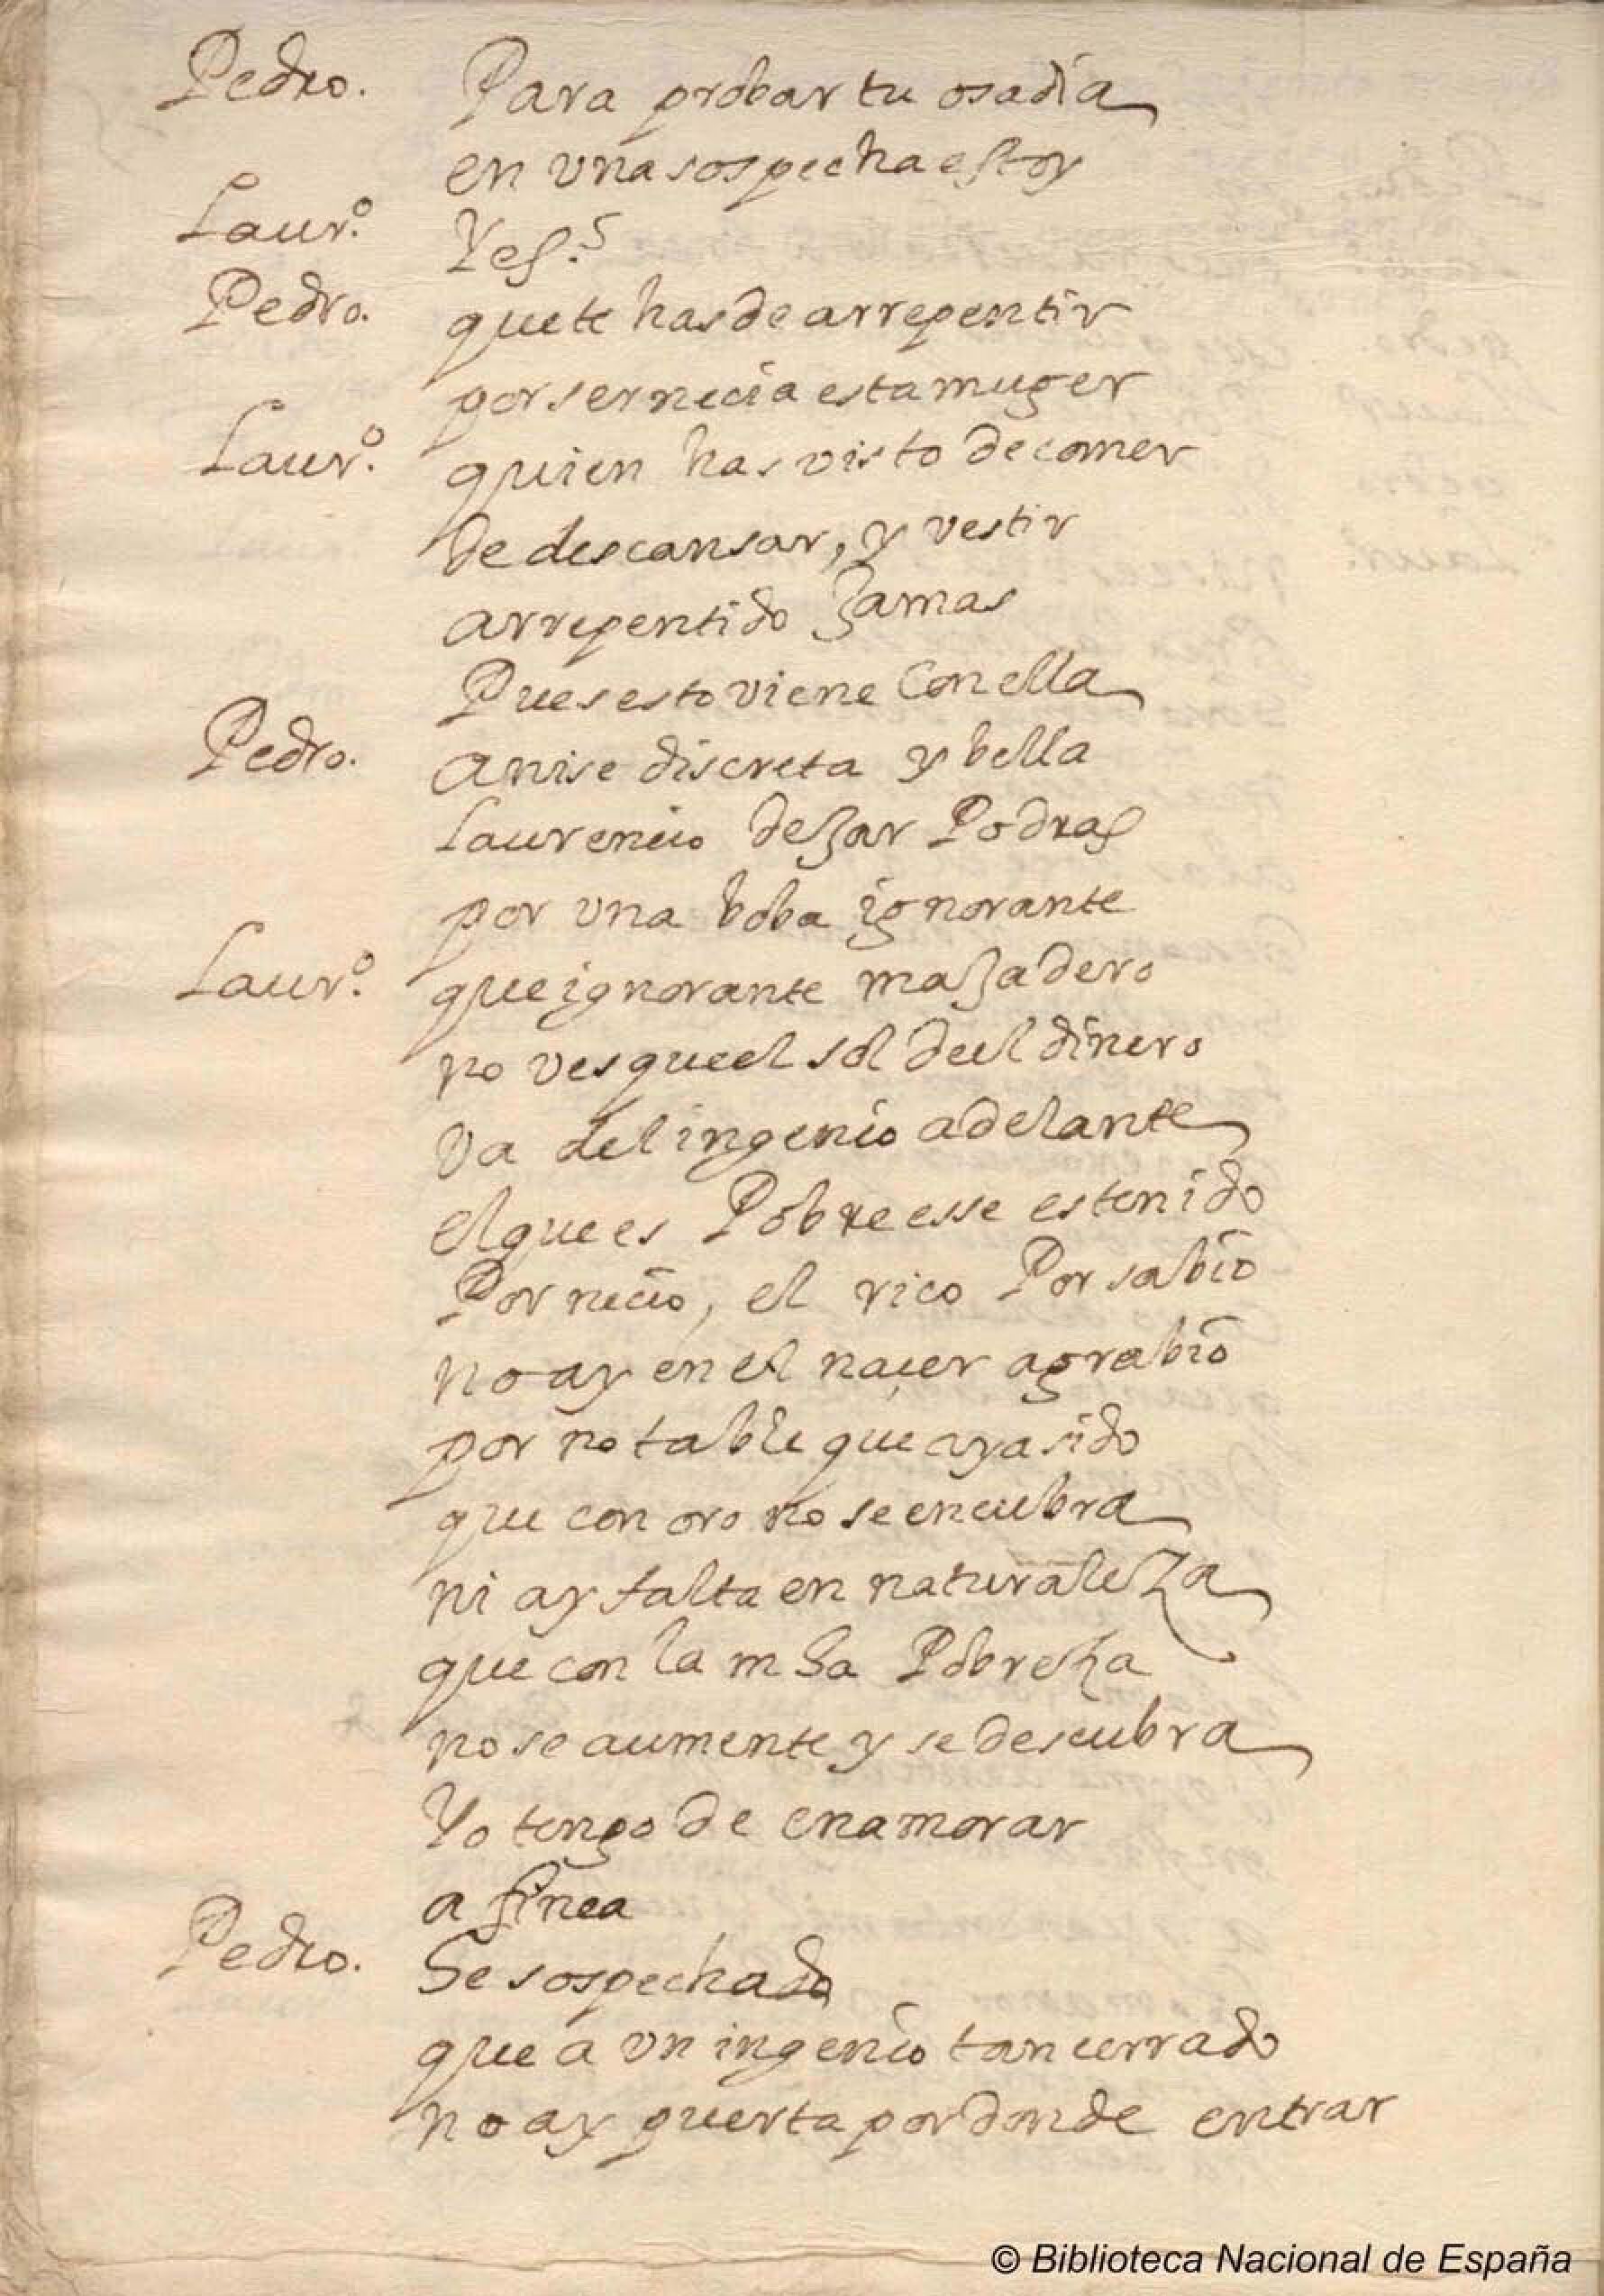 Pedro. Para probar tu osadia
en vna sospecha estoy
Laur.º Y es?
Pedro. que te has de arrepentir
por ser necia esta muger
Laur.º quien has visto de comer
de descansar, y vestir
arrepentido jamas
Pues esto viene Con ella
Pedro. a nise discreta y bella
Laurencio dejar Podras
por vna boba ignorante
Laur.º que ignorante majadero
no ves que el sol deel dinero
va del ingenio adelante
el que es Pobre esse es tenido
Por necio, el rico Por sabio
no ay en el nacer agrabio
por notable que aya sido
que con oro no se encubra
ni ay falta en naturaleza
que con la Pobreza
no se aumente y se descubra
Yo tengo de enamorar
a finea
Pedro. Se sospechado
que a vn ingenio tan cerrado
no ay puerta por donde entrar
© Biblioteca Nacional de España